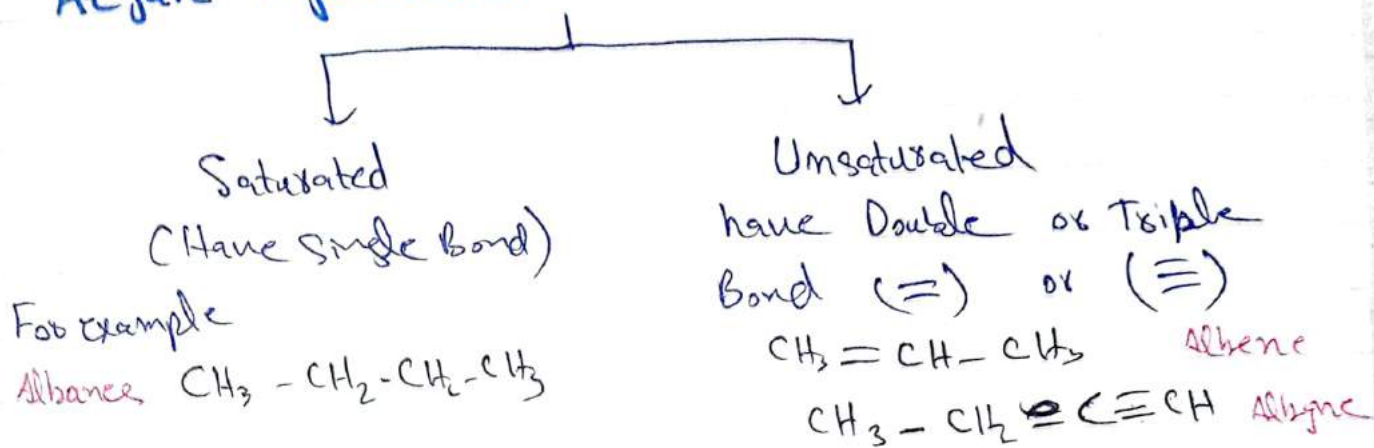 Saturated
(Have Single Bond)
For example
Alkanes CH3 - CH2 - CH2 - CH3
Unsaturated
have Double or Triple
Bond (=) or (≡)
CH3 = CH - CH3 Alkene
CH3 - CH2 - C ≡ CH Alkyne